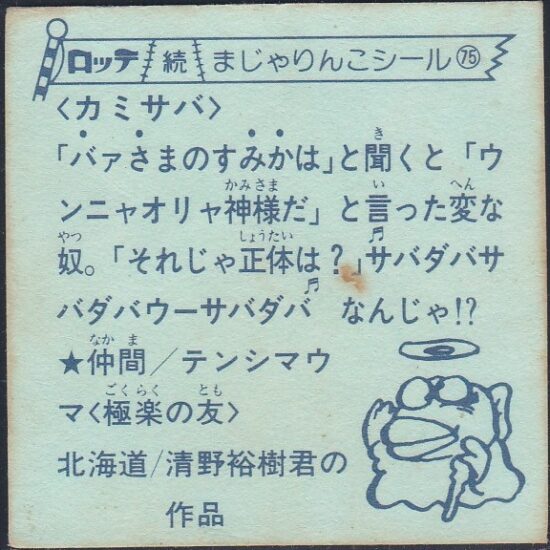 ロッテ 続 まじゃりんこシール 75
〈カミサバ〉
「バァさまのすみかは」と聞くと「ウ
ンニャオリャ神様だ」と言った変な
奴。「それじゃ正体は?」♬サバダバサ
バダバウーサバダバ♬ なんじゃ!?
★仲間/テンシマウ
マ〈極楽の友〉
北海道/清野裕樹君の
作品